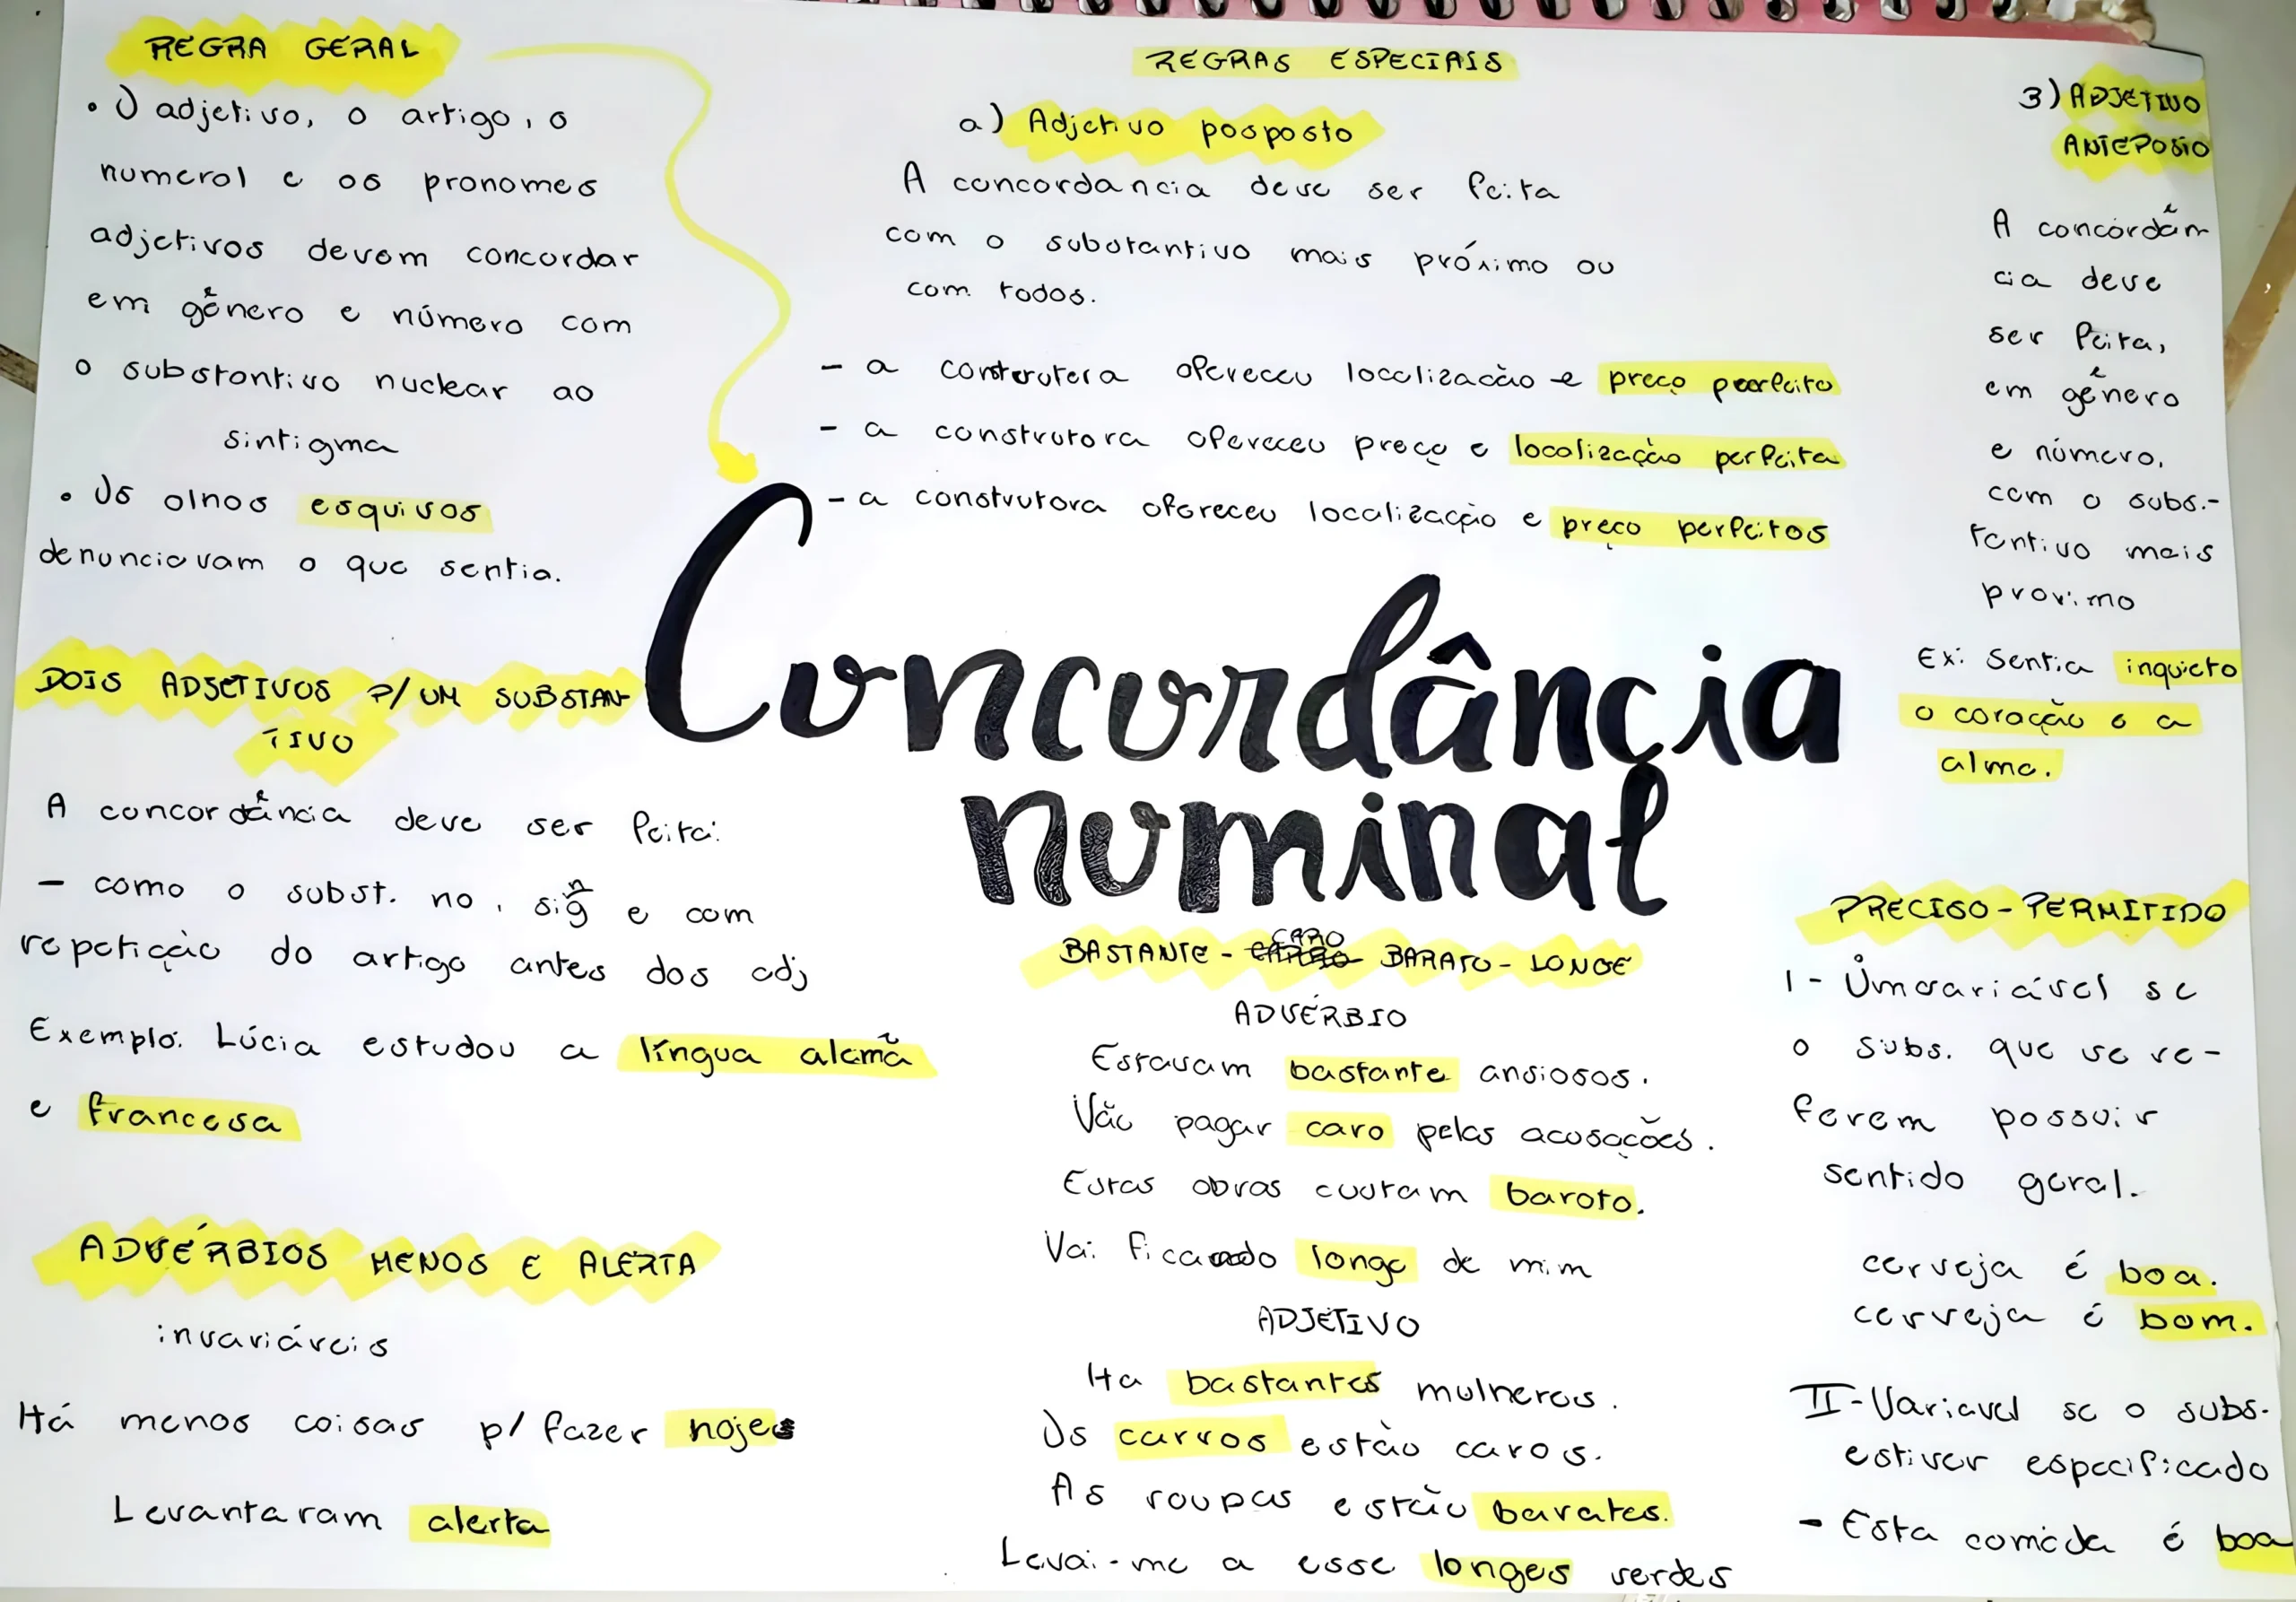 REGRA GERAL
• O adjetivo, o artigo, o
numeral e os pronomes
adjetivos devem concordar
em gênero e número com
o substantivo nuclear ao
sintigma
• Os olhos esquivos
denunciavam o que sentia.
DOIS ADJETIVOS P/ UM SUBSTAN-
TIVO
A concordância deve ser feita:
- como o subst. no, sig e com
repetição do artigo antes dos adj
Exemplo: Lúcia estudou a língua alemã
e francesa
ADVÉRBIOS MENOS E ALERTA
invariáveis
Há menos coisas p/ fazer hoje
Levantaram alerta
REGRAS ESPECIAIS
a) Adjetivo posposto
A concordancia deve ser feita
com o substantivo mais próximo ou
com todos.
- a construtora ofereceu localização e preço perfeito
- a construtora ofereceu preço e localização perfeita
- a construtora ofereceu localização e preço perfeitos
Concordância
nominal
BASTANTE - CARO BARATO - LONGE
ADVÉRBIO
Estavam bastante ansiosos.
Vão pagar caro pelas acusações.
Estas obras custam barato.
Vai ficando longe de mim
ADJETIVO
Ha bastantes mulheres.
Os carros estão caros.
As roupas estão baratas.
Levai-me a esse longes verdes
3) ADJETIVO
ANTEPOSTO
A concordân
cia deve
ser feita,
em gênero
e número,
com o subs.-
tantivo mais
proximo
Ex: Sentia inquieto
o coração e a
alma.
PRECISO - PERMITIDO
I - Invariável se
o subs. que se re-
ferem possuir
sentido geral.
cerveja é boa.
cerveja é bom.
II - Variavel se o subs.
estiver especificado
- Esta comida é boa